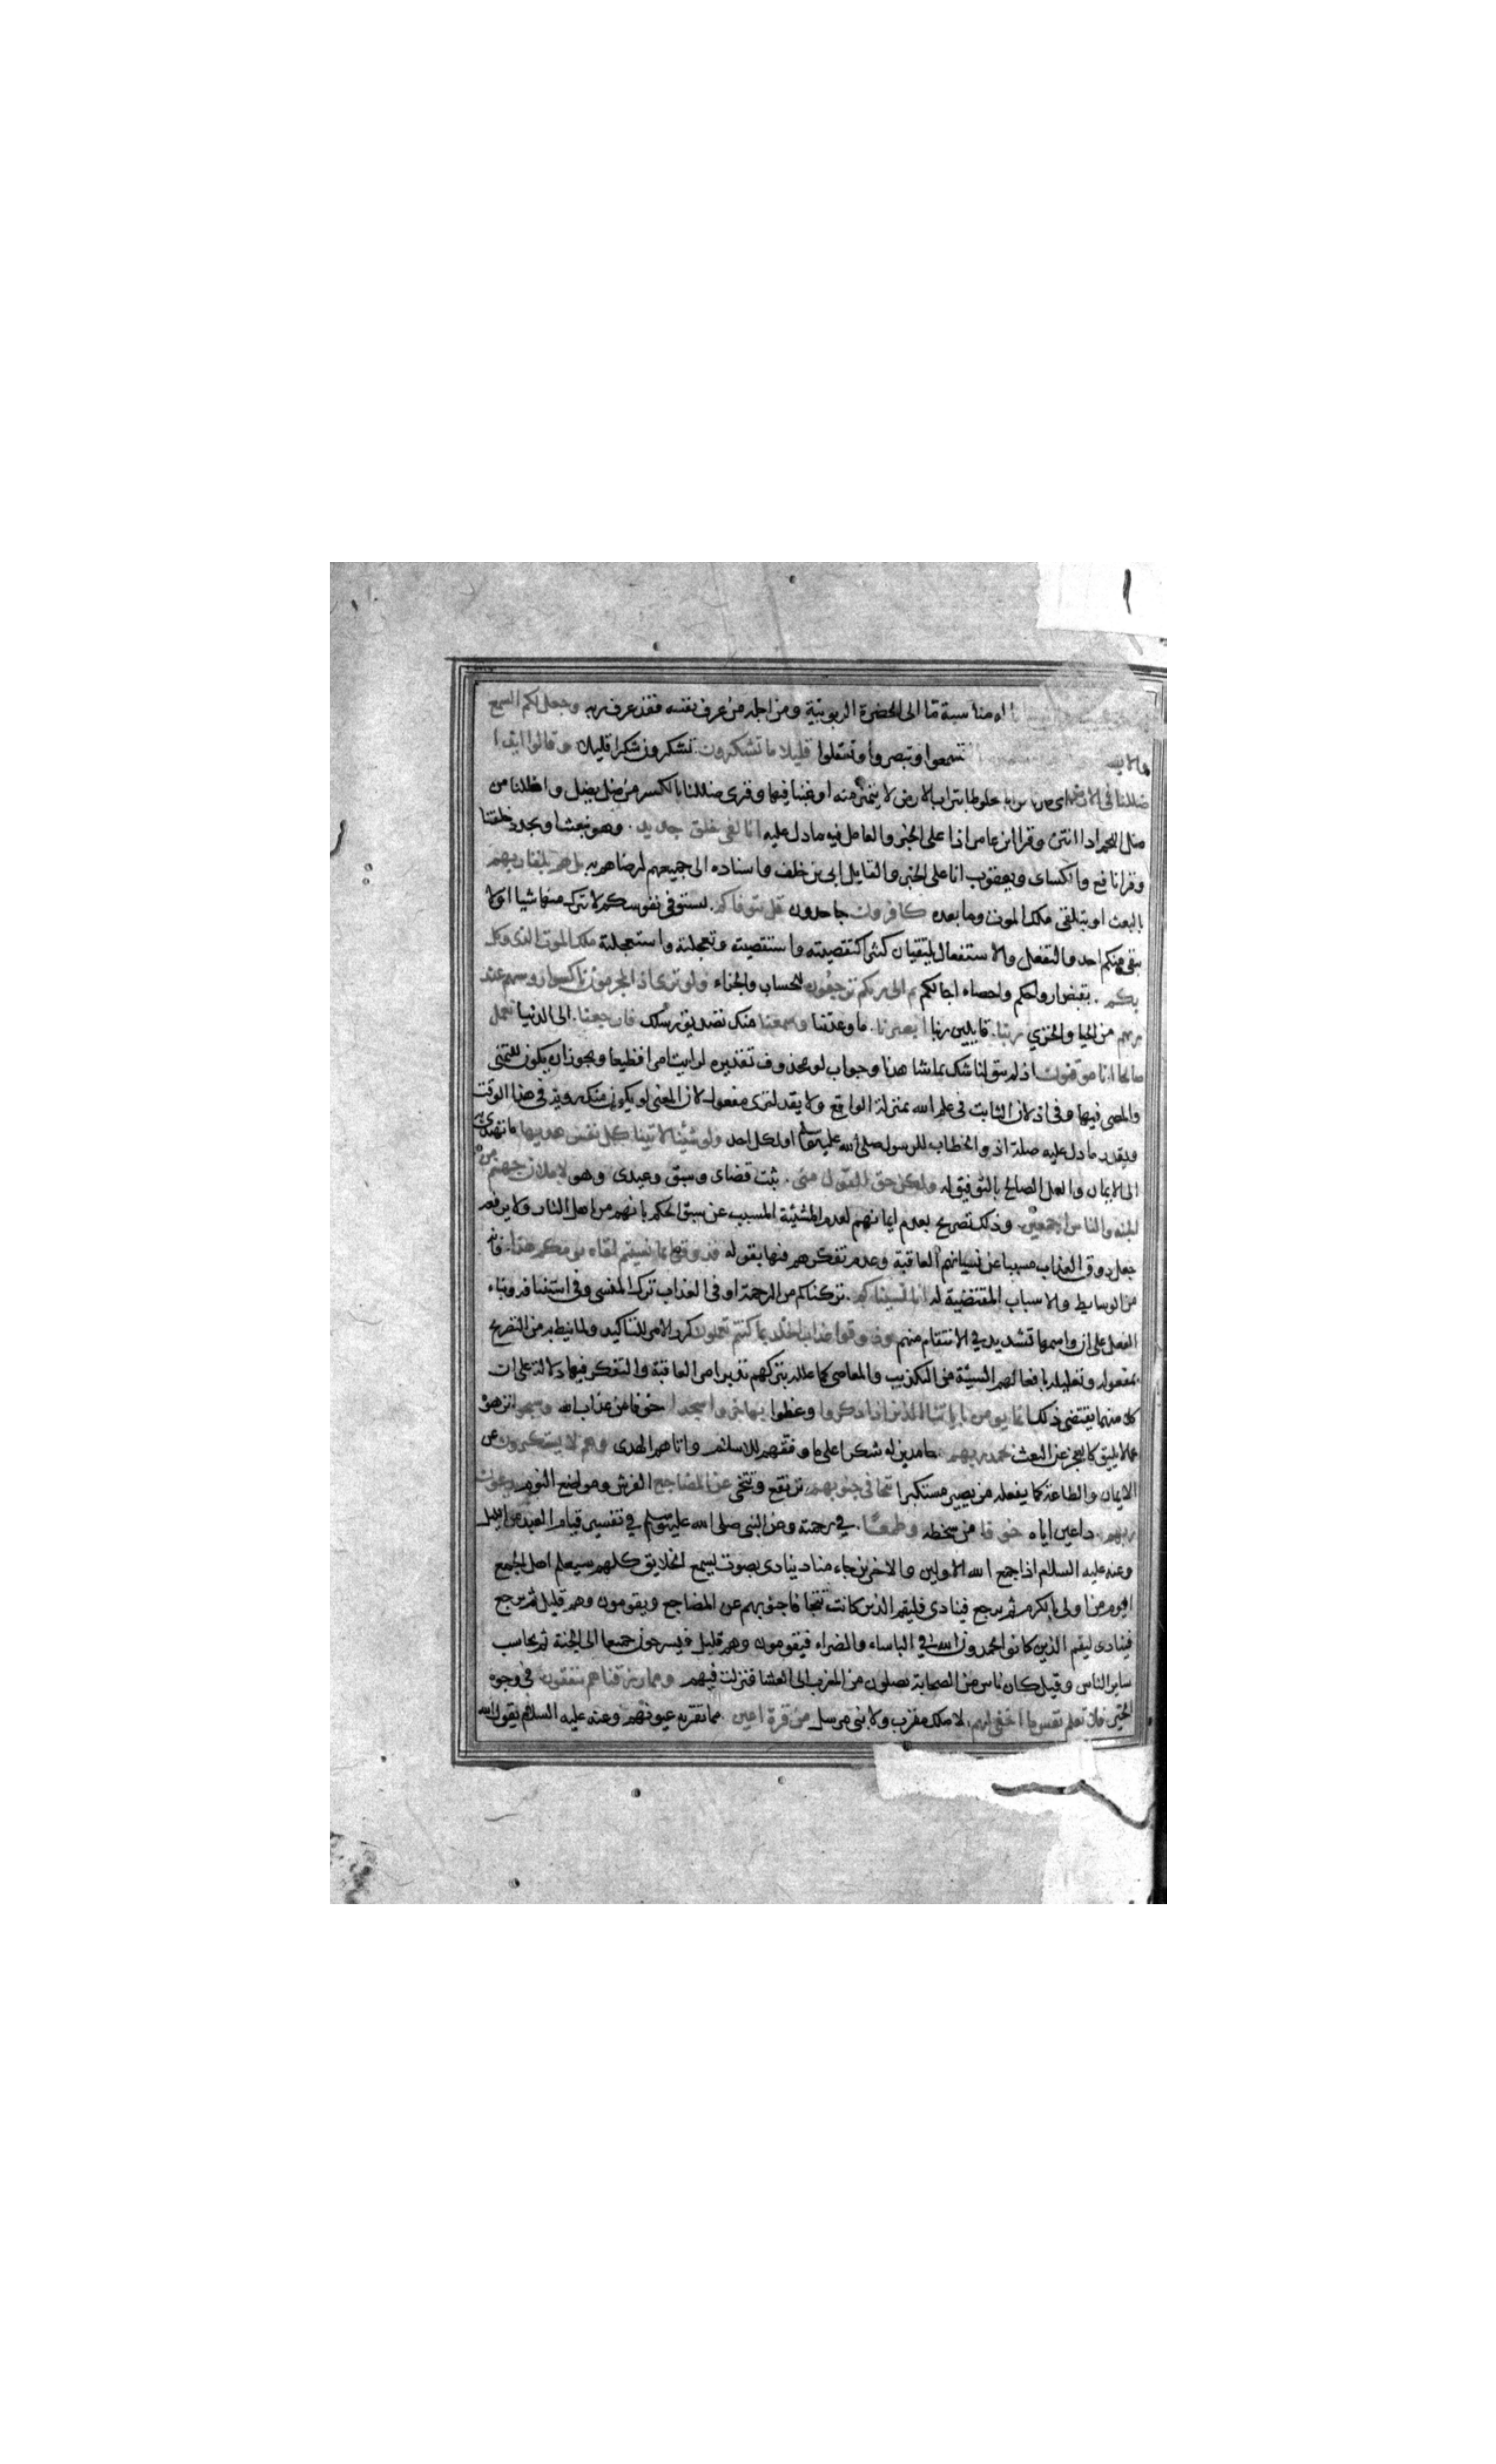 اه مناسبة ما الى الحضرة الربوبية ومن اجله من عرف نفسه فقد عرف ربه وجعل لكم السمع
والا تسمعوا وتبصروا وتعقلوا قليلا ما تشكرون تشكرون شكرا قليلا وقالوا ائذا
ضللنا فى الارض اى صرنا ترابا مخلوطا بتراب الارض لا يتميز منه او غبنا فيها وقرى ضللنا بالكسر من ضل يضل واظللنا من
صل اللحم اذا انتن وقرا ابن عامر اذا على الخبر والعامل فيه ما دل عليه انا لفى خلق جديد وهو نبعث او يجدد خلقنا
وقرا نافع والكسائى ويعقوب انا على الخبر والقايل ابى بن خلف واسناده الى جميعهم لرضاهم به بل هم بلقاء ربهم
بالبعث او بتلقى ملك الموت وما بعده كافرون جاحدون قل يتوفاكم يستوفى نفوسكم لا يترك منها شيا او لا
يبقى منكم احد والتفعل والاستفعال يلتقيان كثيرا كتقصيته واستقصيته وتعجلته واستعجلته ملك الموت الذى وكل
بكم بقبض ارواحكم واحصاء اجالكم ثم الى ربكم ترجعون للحساب والجزاء ولو ترى اذ المجرمون ناكسوا روسهم عند
ربهم من الحيا والخزي ربنا قايلين ربنا ابصرنا ما وعدتنا وسمعنا منك تصديق رسلك فارجعنا الى الدنيا نعمل
صالحا انا موقنون اذ لم يبق لنا شك بما شاهدنا وجواب لو محذوف تقديره لرايت امرا فظيعا ويجوز ان يكون للتمنى
والمضى فيها وفى اذ لان الثابت فى علم الله بمنزلة الواقع ولا يقدر لترى مفعول لان المعنى لو يكون منك رويذ فى هذا الوقت
ويقدر ما دل عليه صلة اذ والخطاب للرسول صلى الله عليه وسلم او لكل احد ولو شئنا لاتينا كل نفس هديها ما تهتدى به
الى الايمان والعمل الصالح بالتوفيق له ولكن حق القول منى ثبت قضاى وسبق وعيدى وهو لاملان جهنم من
الجنه والناس اجمعين وذلك تصريح بعدم ايمانهم لعدم المشيئة المسبب عن سبق الحكم بانهم من اهل النار ولا يدفعه
جعل ذوق العذاب مسببا عن نسيانهم العاقبة وعدم تفكرهم فيها بقوله فذوقوا بما نسيتم لقاء يومكم هذا فانه
من الوسايط والاسباب المقتضية له انا نسيناكم تركناكم من الرحمة او فى العذاب ترك المنسى وفى استينافه وبناء
الفعل على ان واسمها تشديد في الانتقام منهم وذوقوا عذاب الخلد بما كنتم تعملون كرر الامر للتاكيد ولما نيط به من التصريح
بمفعوله وتعليله بافعالهم السيئة من التكذيب والمعاصى كما علله بتركهم تدبر امر العاقبة والتفكر فيها دلالة على ان
كلا منهما يقتضى ذلك انما يومن باياتنا الذين اذا ذكروا وعظوا بها خروا سجدا خوفا من عذاب الله وسبحوا نزهوه
عما لا يليق كالعجز عن البعث بحمد ربهم حامدين له شكرا على ما وفقهم للاسلام واتاهم الهدى وهم لا يستكبرون عن
الايمان والطاعة كما يفعله من يصير مستكبرا تتجافى جنوبهم ترتفع وتتنحى عن المضاجع الفرش ومواضع النوم يدعون
ربهم داعين اياه خوفا من سخطه وطمعا في رحمته وعن النبى صلى الله عليه وسلم في تفسير قيام العبد من الليل
وعنه عليه السلام اذا جمع الله الاولين والاخرين جاء مناد ينادى بصوت يسمع الخلايق كلهم سيعلم اهل الجمع
اليوم من اولى بالكرم ثم يرجع فينادى فليقم الذين كانت تتجافا جنوبهم عن المضاجع ويقومون وهم قليل ثم يرجع
فينادى ليقم الذين كانوا يحمدون الله في الباساء والضراء فيقومون وهم قليل فيسرحون جميعا الى الجنة ثم يحاسب
ساير الناس وقيل كان ناس من الصحابة يصلون من المغرب الى العشا فنزلت فيهم ومما رزقناهم ينفقون فى وجوه
الخير فلا تعلم نفس ما اخفى لهم لا ملك مقرب ولا نبى مرسل من قرة اعين مما تقر به عيونهم وعنه عليه السلام يقول الله